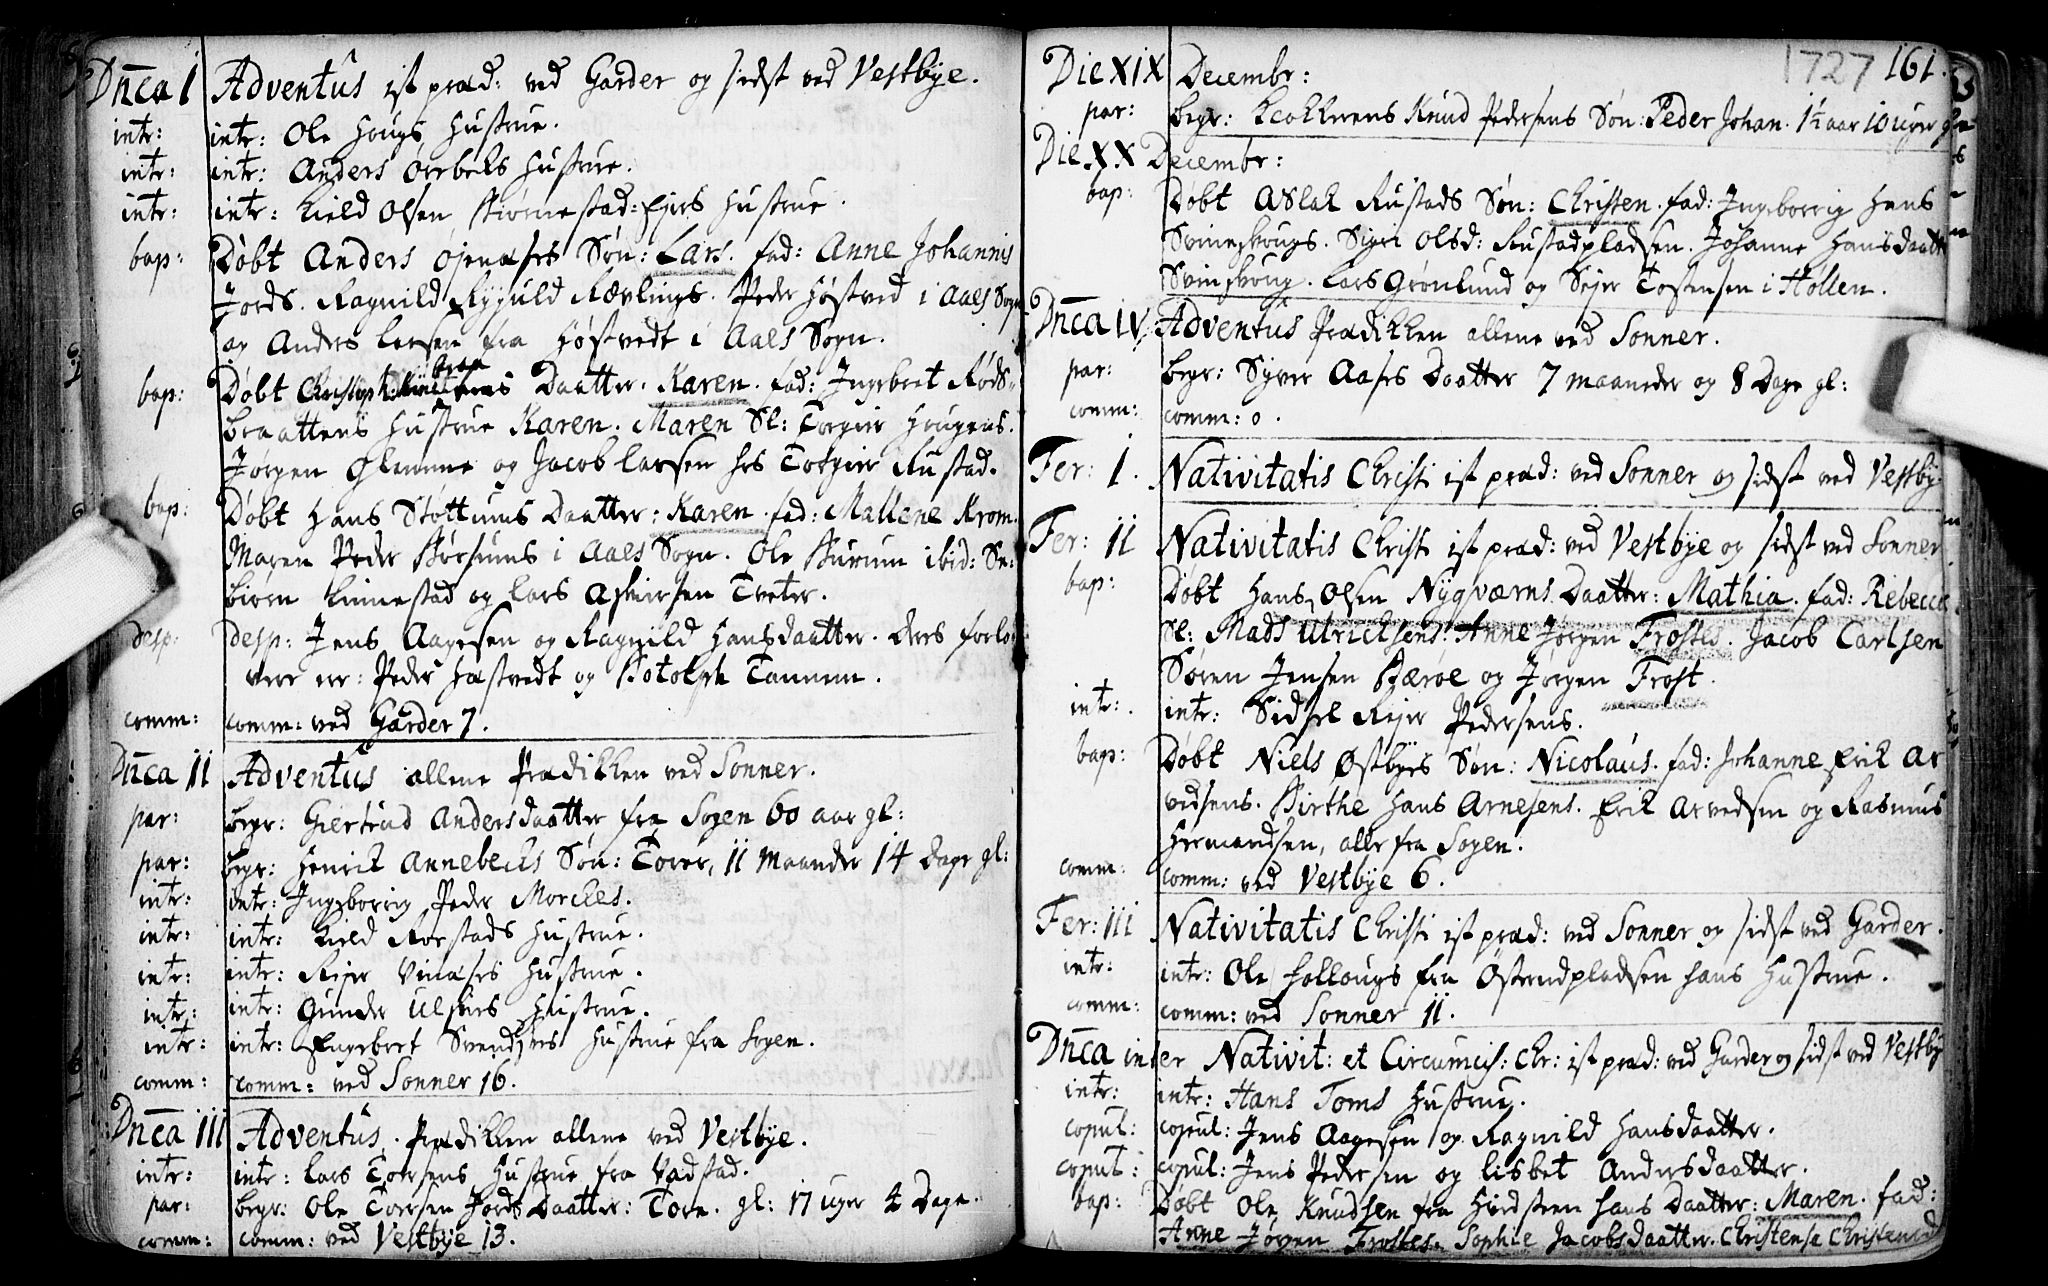 Dnca I Adventus ist præd: ved Garder og sidst ved Vestbye.
intr: intr: Ole Haugs Hustrue.
intr: intr: Anders Orrbeks Hustrue.
intr: intr: Kield Olsen Hustrue.
bap: Døbt Anders Øjenæses Søn: Lars. fad: Anne Johannis
Jords. Ragnild Rævlings. Peder Høstved i Aaes Sogn
og Anders Larsen fra Høstvedt i Aaes Sogn.
bap: Døbt Daatter. Karen. fad: Ingebret Røds-
braattens Hustrue Karen. Maren Sl: Torgier Haugens.
Jørgen Glenne og Jacob Larsen hos Torgier Rustad.
bap: Døbt Hans Støttums Daatter: Karen. fad: Mallene Krom.
Maren Peder i Aaes Sogn. Ole ibid: Se-
biørn Linnestad og Lars Tveter.
desp: desp: Jens Aagesen og Ragnild Hansdaatter. deres forlo-
vere ere: Peder Høstvedt og Botolph Tannum.
comm: comm: ved Garder 7.
Dnca II Adventus allene Prædikken ved Sonner.
par: begr: Giertrud Andersdaatter fra Sogen 60 aar gl:
par: begr: Henrik Annebecks Søn: Tover, 11 Maander 14 Dage gl:
intr: intr: Ingeborrig Peder Morches.
intr: intr: Kield Rorstads Hustrue.
intr: intr: Rejer Vinæses Hustrue.
intr: intr: Gunder Hustrue.
intr: intr: Engebret Hustrue fra Sogen.
comm: comm: ved Sonner 16.
Dnca III Adventus. Prædikken allene ved Vestbye.
intr: intr: Lars Toersens Hustrue fra Vadstad.
par: begr: Ole Toersen Jords Daatter: Tore. gl: 17 uger 4 Dage.
comm: comm: ved Vestbye 13.
1727 161.
Die XIX Decembr:
par: begr: Klokkerens Knud Pedersens Søn: Peder Johan. 1½ aar 10 uger
Die XX Decembr:
bap: Døbt Aslak Rustads Søn: Christen. fad: Ingeborrig Hans
Svinskougs. Sigri Olsd: Rustadpladsen. Johanne Hansdaatt
Svinskoug. Lars Grønlund og Sejer Tostensen i Høllen.
Dnca IV Adventus Prædikken allene ved Sonner.
par: begr: Syver Aases Daatter 7 maaneder og 8 Dage gl:
comm: comm: 0.
Fer: I. Nativitatis Christi ist præd: ved Sonner og sidst ved Vestby
Fer: II Nativitatis Christi ist præd: ved Vestbye og sidst ved Sonner
bap: Døbt Hans Olsen Nygværns Daatter: Mathia. fad: Rebecca
Sl: Mads Ulrichsens. Anne Jørgen Frostes. Jacob Carlsen
Søren Jensen Bærøe og Jørgen Frost.
intr: intr: Sidsel Rejer Pedersens.
bap: Døbt Niels Østbyes Søn: Nicolaus. fad: Johanne Erik Ar
vedsens. Birthe Hans Arnesens. Erik Arvedsen og Rasmus
Hermandsen, alle fra Sogen.
comm: comm: ved Vestbye 6.
Fer: III Nativitatis Christi ist præd: ved Sonner og sidst ved Garder.
intr: intr: Ole Hollougs fra Østendpladsen hans Hustrue.
comm: comm: ved Sonner 11.
Dnca inter Nativit: et Circumcis: Chr: ist præd: ved Garder og sidst ved Vestby
intr: intr: Hans Toms Hustrue.
copul: copul: Jens Aagesen og Ragnild Hansdaatter.
copul: copul: Jens Pedersen og Lisbet Andersdaatter.
bap: Døbt Ole Knudsen fra hans Daatter: Maren. fad:
Anne Jørgen Frostes. Sophie Jacobsdaatter. Christense Christensd